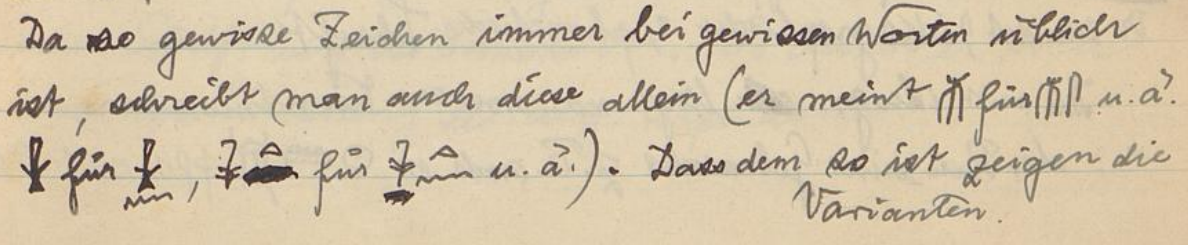 Da so gewisse Zeichen immer bei gewissen Worten üblich
ist, schreibt man auch diese allein (er meint für u. ä.
für , für u. ä.). Dass dem so ist zeigen die
Varianten.